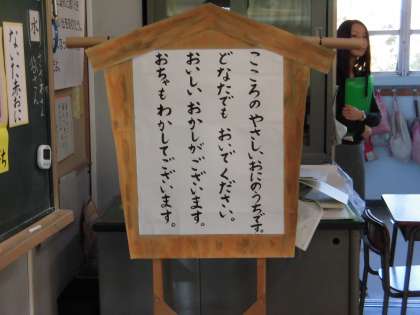 こころの やさしいおにのうちです。
どなたでも おいでください。
おいしい おかしがございます。
おちゃも わかしてございます。
水
ないた赤おに